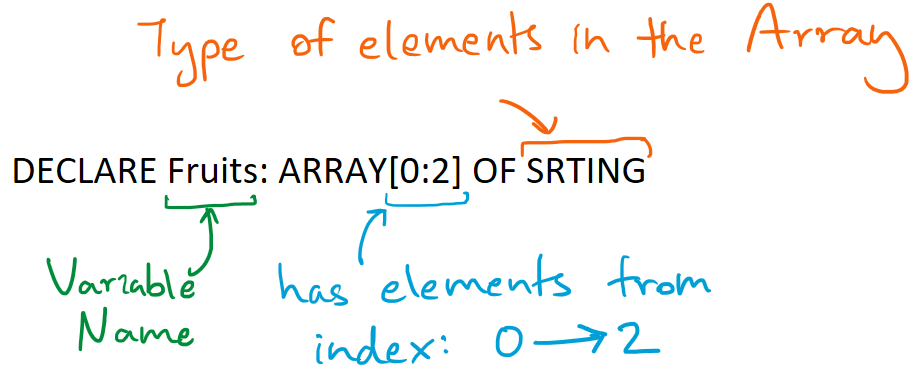 Type of elements in the Array
DECLARE Fruits: ARRAY[0:2] OF SRTING
Variable
Name
has elements from
index: 0 → 2